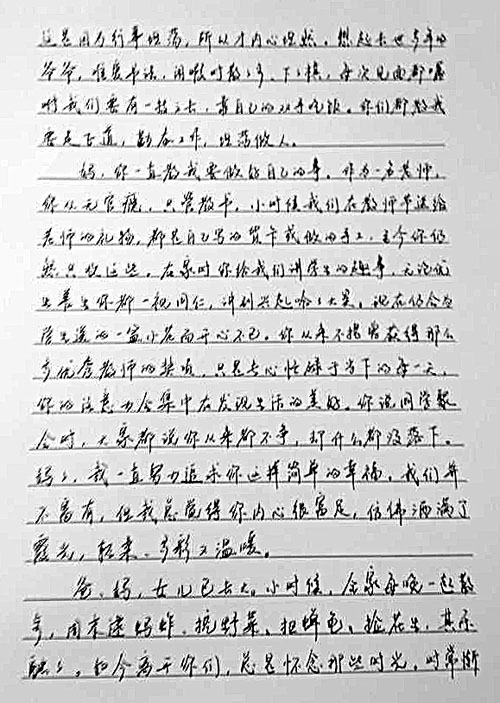 这是因为行事坦荡，所以才内心坦然。想起去世多年的
爷爷，唯爱书法，闲暇时散散步、下下棋，每次见面都嘱
咐我们要有一技之长，靠自己的双手吃饭。你们都教我
要走正道，勤奋工作，坦荡做人。
妈，你一直教我要做好自己的事。作为一名老师，
你从无官瘾，只管教书。小时候我们在教师节送给
老师的礼物，都是自己写的贺卡或做的手工，至今你仍
然只收这些。在家时你给我们讲学生的趣事，无论优
生差生你都一视同仁，讲到兴起哈哈大笑。现在仍会为
学生送的一盆小花而开心不已。你从来不提曾获得那么
多优秀教师的奖项，只是专心忙碌于当下的每一天，
你的注意力全集中在发现生活的美好。你说同学聚
会时，大家都说你从来都不争，却什么都没落下。
妈妈，我一直努力追求你这样简单的幸福。我们并
不富有，但我总觉得你内心很富足，仿佛洒满了
霞光，轻柔、多彩又温暖。
爸、妈，女儿已长大。小时候，全家每晚一起散
步，周末逮蚂蚱、挖野菜、捉蝉龟、捡花生，其乐
融融。如今离开你们，总是怀念那些时光，时常渐